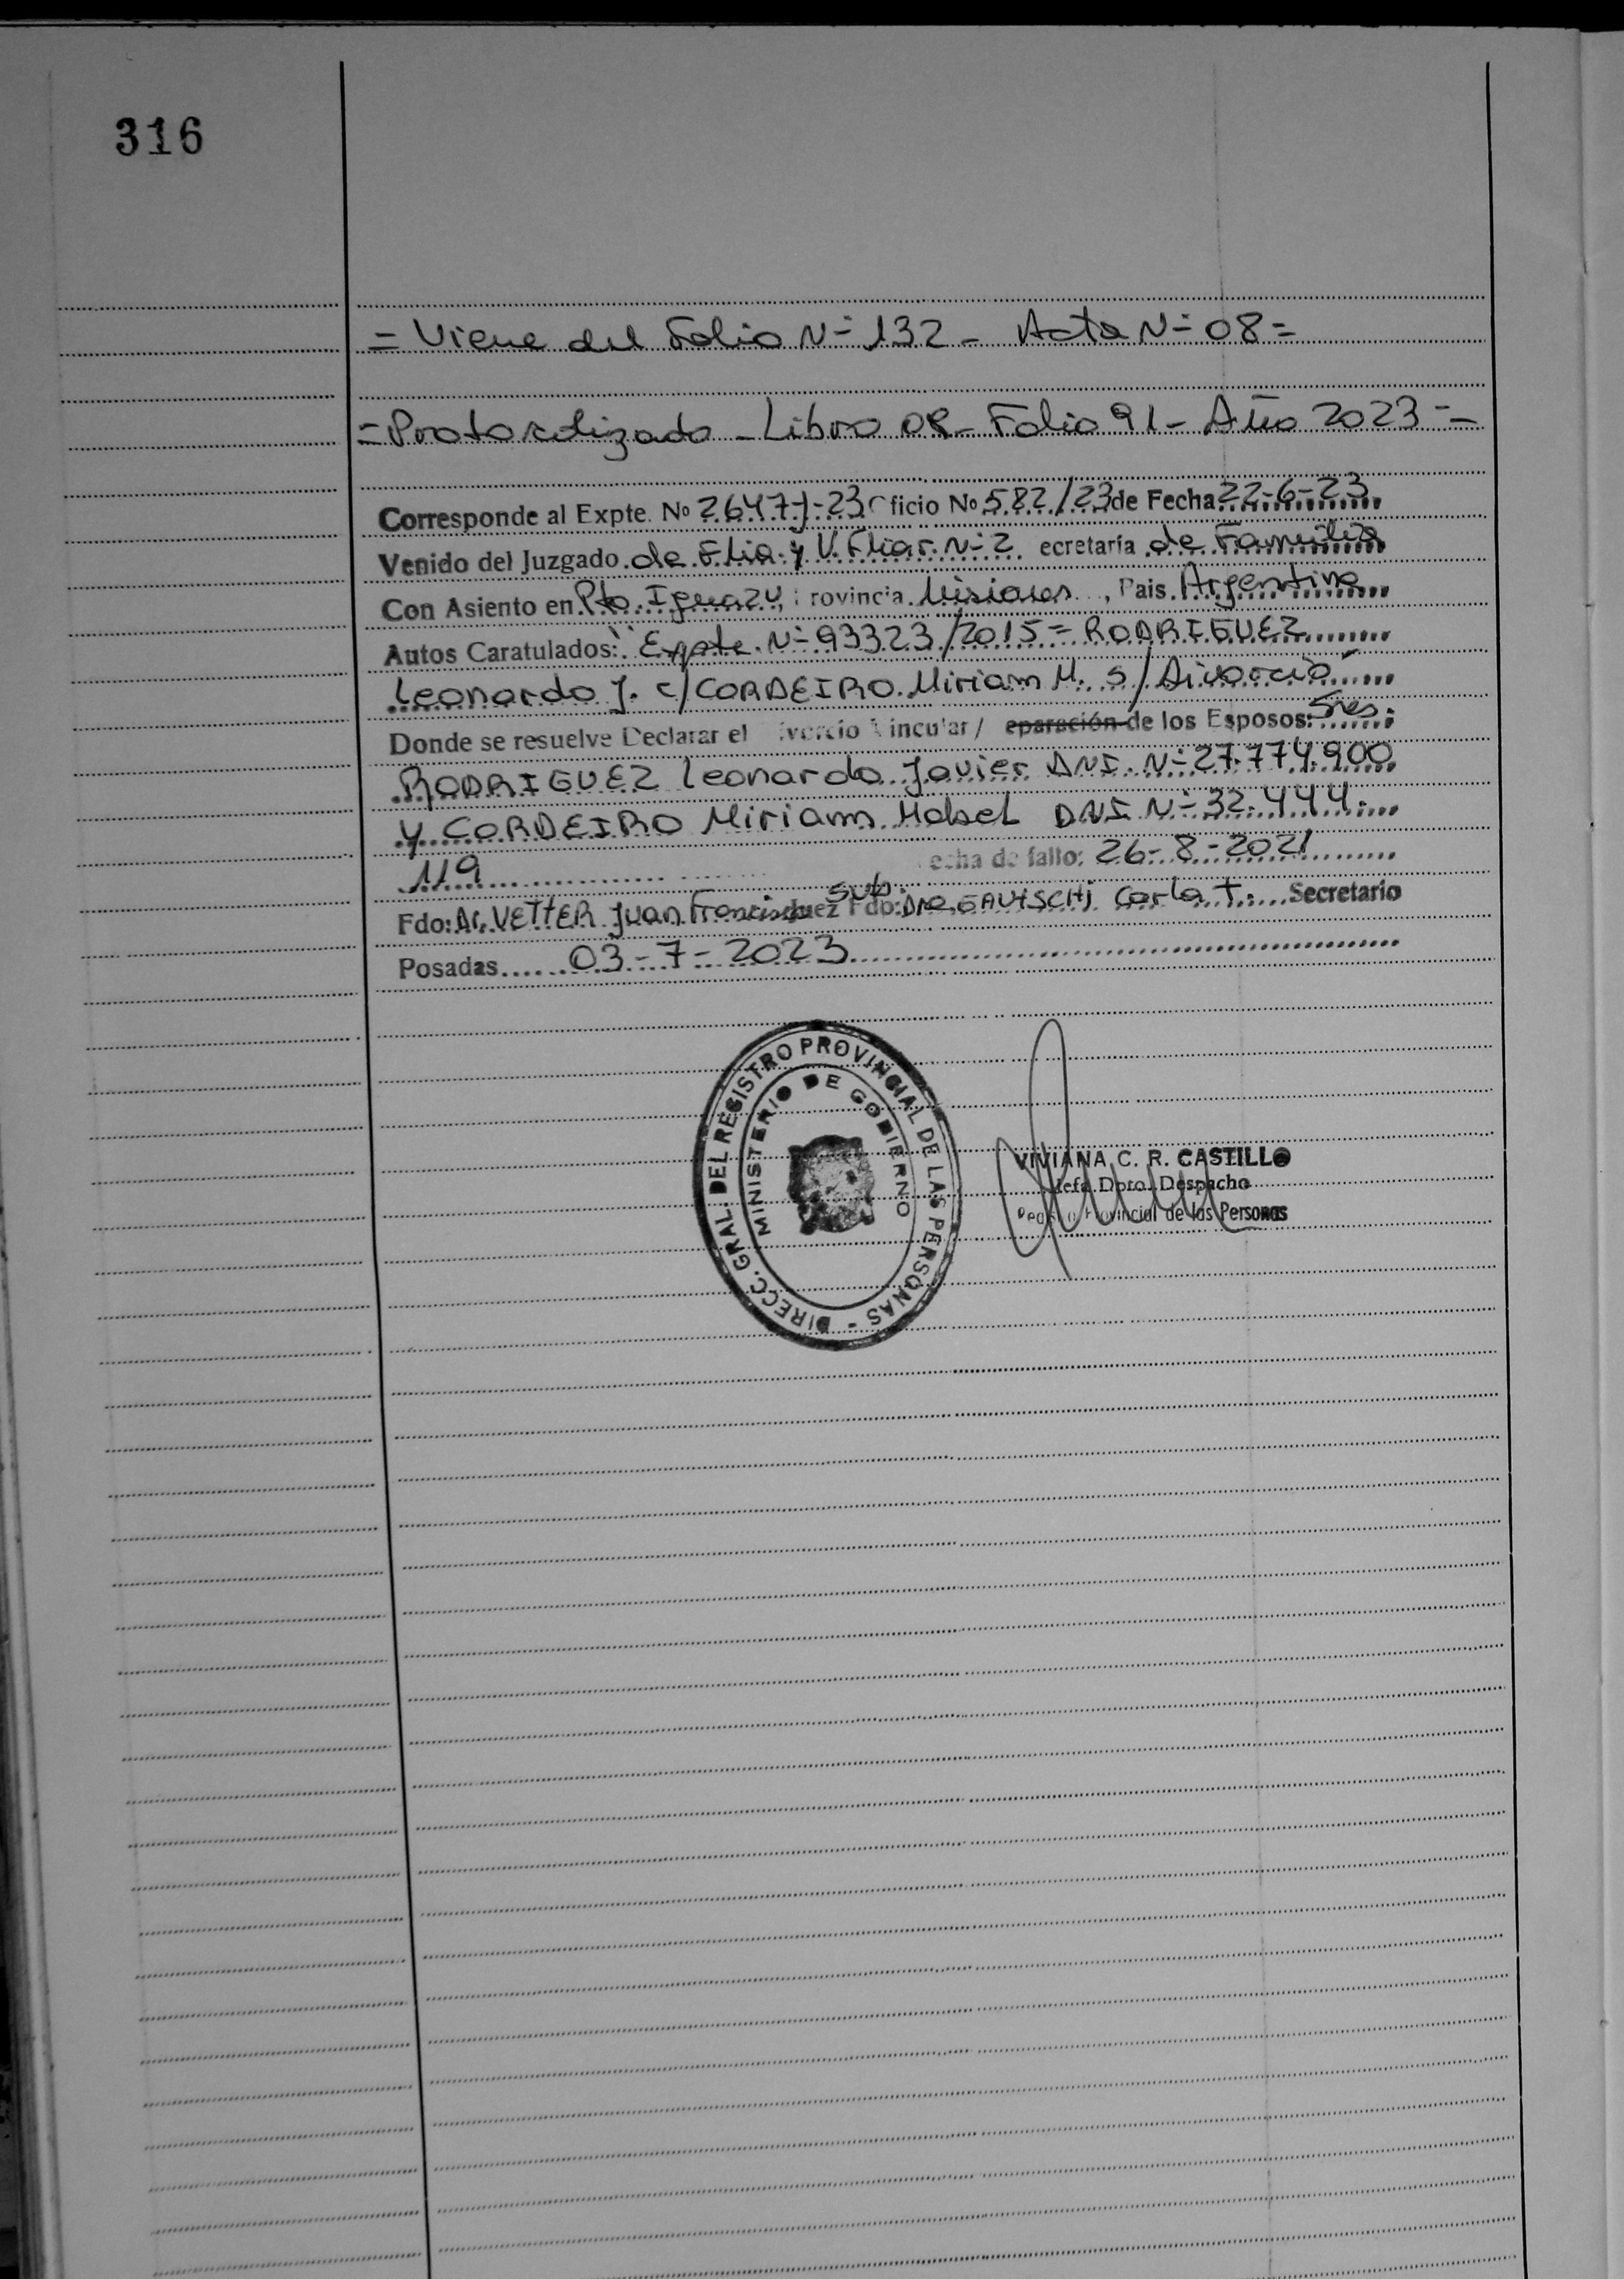 316
= Viene del Folio N= 132 - Acta N= 08 =
= Protocolizado - Libro 08 - Folio 91 - Año 2023 =
Corresponde al Expte. No 2647-J-23 Oficio No 582/23 de Fecha 22-6-23
Venido del Juzgado de Flia. y V. Fliar. N= 2 ecretaría de Familia
Con Asiento en Pto. Iguazu, rovincia Misiones, Pais Argentina
Autos Caratulados: "Expte. N= 93323/2015 = RODRIGUEZ
Leonardo J. c/ CORDEIRO Miriam M. s/ Divorcio"
Donde se resuelve Declarar el ivorcio Vincular / eparación de los Esposos: Sres.
RODRIGUEZ Leonardo Javier DNI. N= 27.774.900
y CORDEIRO Miriam Mabel DNI. N= 32.444.
119 echa de fallo: 26-8-2021
Fdo: Dr. VETTER Juan Francisco Juez Sub. Fdo: Dra. Carla T. Secretario
Posadas 03-7-2023
DIRECC. GRAL. DEL REGISTRO PROVINCIAL DE LAS PERSONAS -
MINISTERIO DE GOBIERNO
VIVIANA C. R. CASTILLO
Jefa Dpto. Despacho
Registro Provincial de las Personas